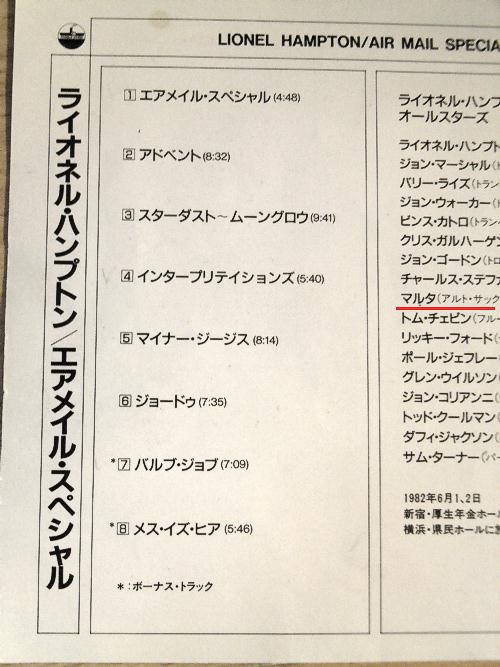 LIONEL HAMPTON/AIR MAIL SPECIA
ライオネル・ハンプトン/エアメイル・スペシャル
1 エアメイル・スペシャル (4:48)
2 アドベント (8:32)
3 スターダスト～ムーングロウ (9:41)
4 インタープリテイションズ (5:40)
5 マイナー・ジージス (8:14)
6 ジョードゥ (7:35)
*7 バルブ・ジョブ (7:09)
*8 メス・イズ・ヒア (5:46)
*:ボーナス・トラック
ライオネル・ハンプ
オールスターズ
ライオネル・ハンプト
ジョン・マーシャル(ト
バリー・ライズ(トラン
ジョン・ウォーカー(ト
ビンス・カトロ(トラン
クリス・ガルハーゲン
ジョン・ゴードン(トロ
チャールス・ステファ
マルタ(アルト・サック
トム・チェピン(フルー
リッキー・フォード(
ポール・ジェフレー(
グレン・ウイルソン(
ジョン・コリアンニ(
トッド・クールマン(
ダフィ・ジャクソン(
サム・ターナー(パー
1982年6月1、2日
新宿・厚生年金ホール
横浜・県民ホールに